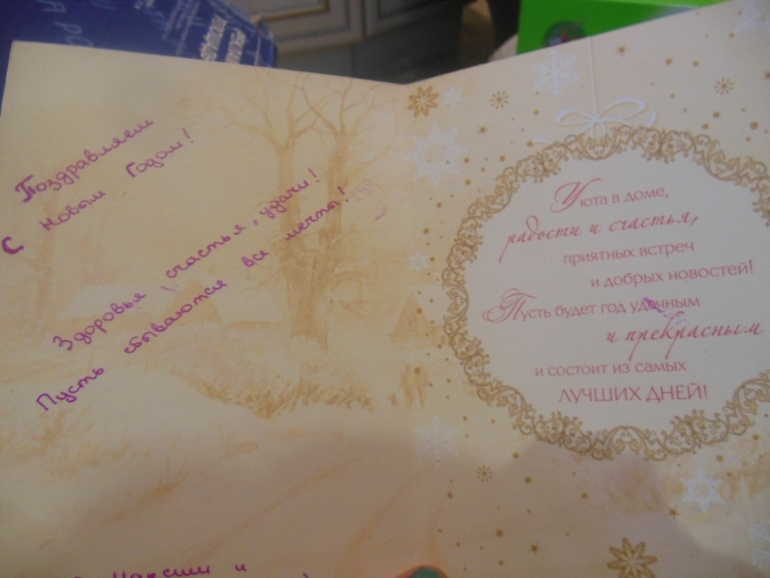 Поздравляем
С Новым Годом!
Здоровья, счастья, удачи!
Пусть сбываются все мечты!
Максим и
Уюта в доме,
радости и счастья,
приятных встреч
и добрых новостей!
Пусть будет год удачным
и прекрасным
и состоит из самых
ЛУЧШИХ ДНЕЙ!